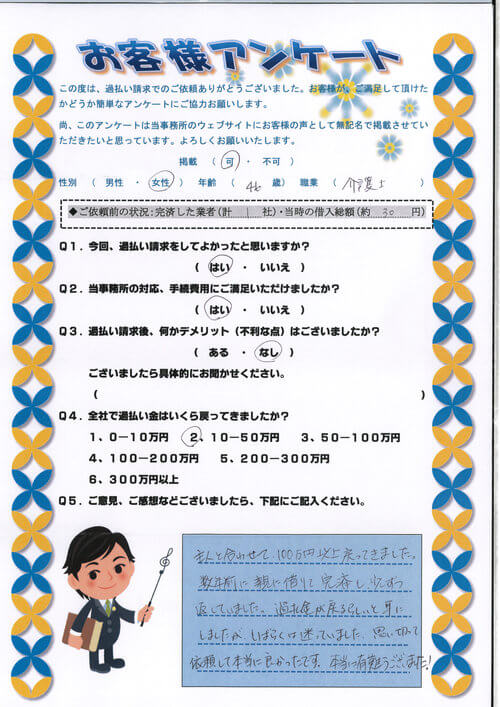 お客様アンケート
この度は、過払い請求でのご依頼ありがとうございました。お客様が、ご満足して頂けた
かどうか簡単なアンケートにご協力お願いします。
尚、このアンケートは当事務所のウェブサイトにお客様の声として無記名で掲載させてい
ただきたいと思っています。よろしくお願いいたします。
掲載 ( 可 ・ 不可 )
性別 ( 男性 ・ 女性 ) 年齢 ( 46 歳) 職業 ( 介護士 )
◆ご依頼前の状況:完済した業者(計 1 社)・当時の借入総額(約 30 円)
Q1.今回、過払い請求をしてよかったと思いますか?
( はい ・ いいえ )
Q2.当事務所の対応、手続費用にご満足いただけましたか?
( はい ・ いいえ )
Q3.過払い請求後、何かデメリット(不利な点)はございましたか?
( ある ・ なし )
ございましたら具体的にお聞かせください。
( )
Q4.全社で過払い金はいくら戻ってきましたか?
1、0-10万円 2、10-50万円 3、50-100万円
4、100-200万円 5、200-300万円
6、300万円以上
Q5.ご意見、ご感想などございましたら、下記にご記入ください。
主人と合わせて、100万円以上戻ってきました。
数年前に親に借りて完済し少しずつ
返していました。過払金が戻るらしいと耳に
しましたが、しばらくは迷っていました。思い切って
依頼して本当に良かったです。本当に有難うございました!